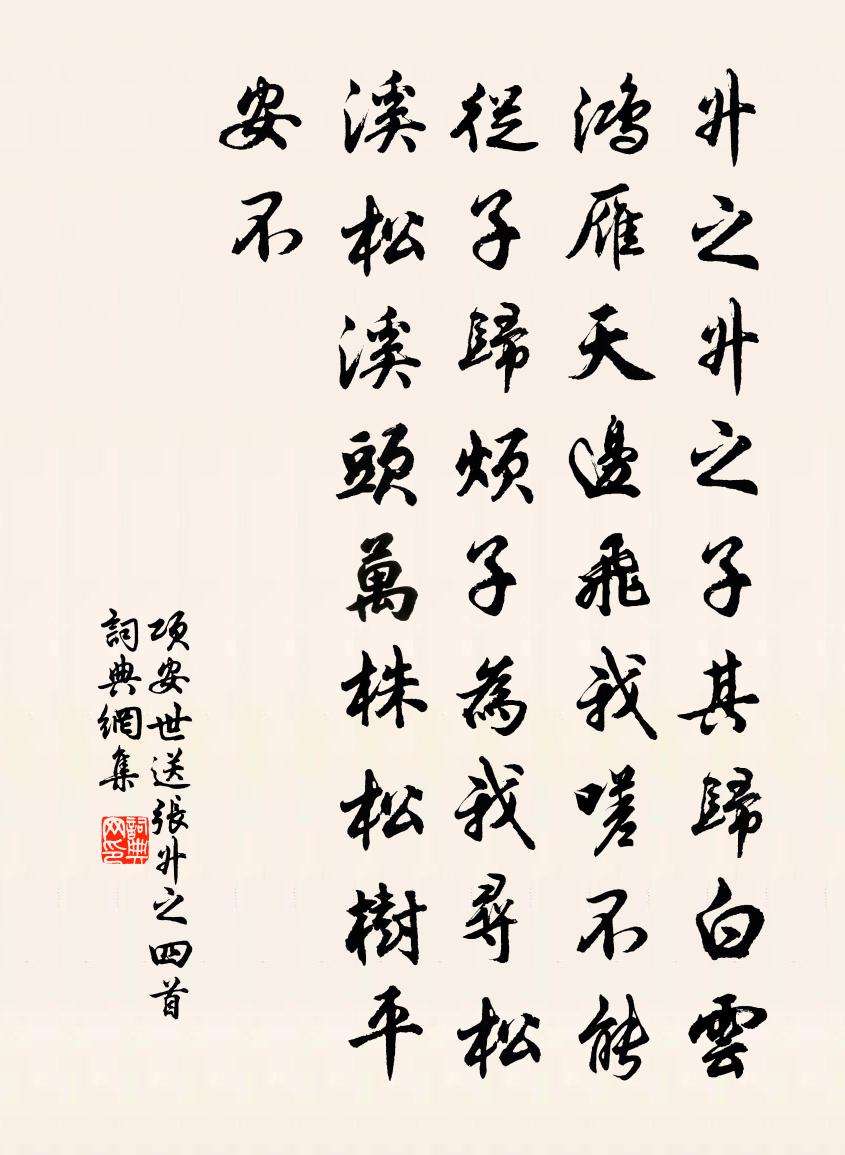 升之升之子其歸白雲
鴻雁天邊飛我嗟不能
從子歸煩子為我尋松
溪松溪頭萬株松樹平
安不
項安世送張升之四首
詞典網集
詞典网印